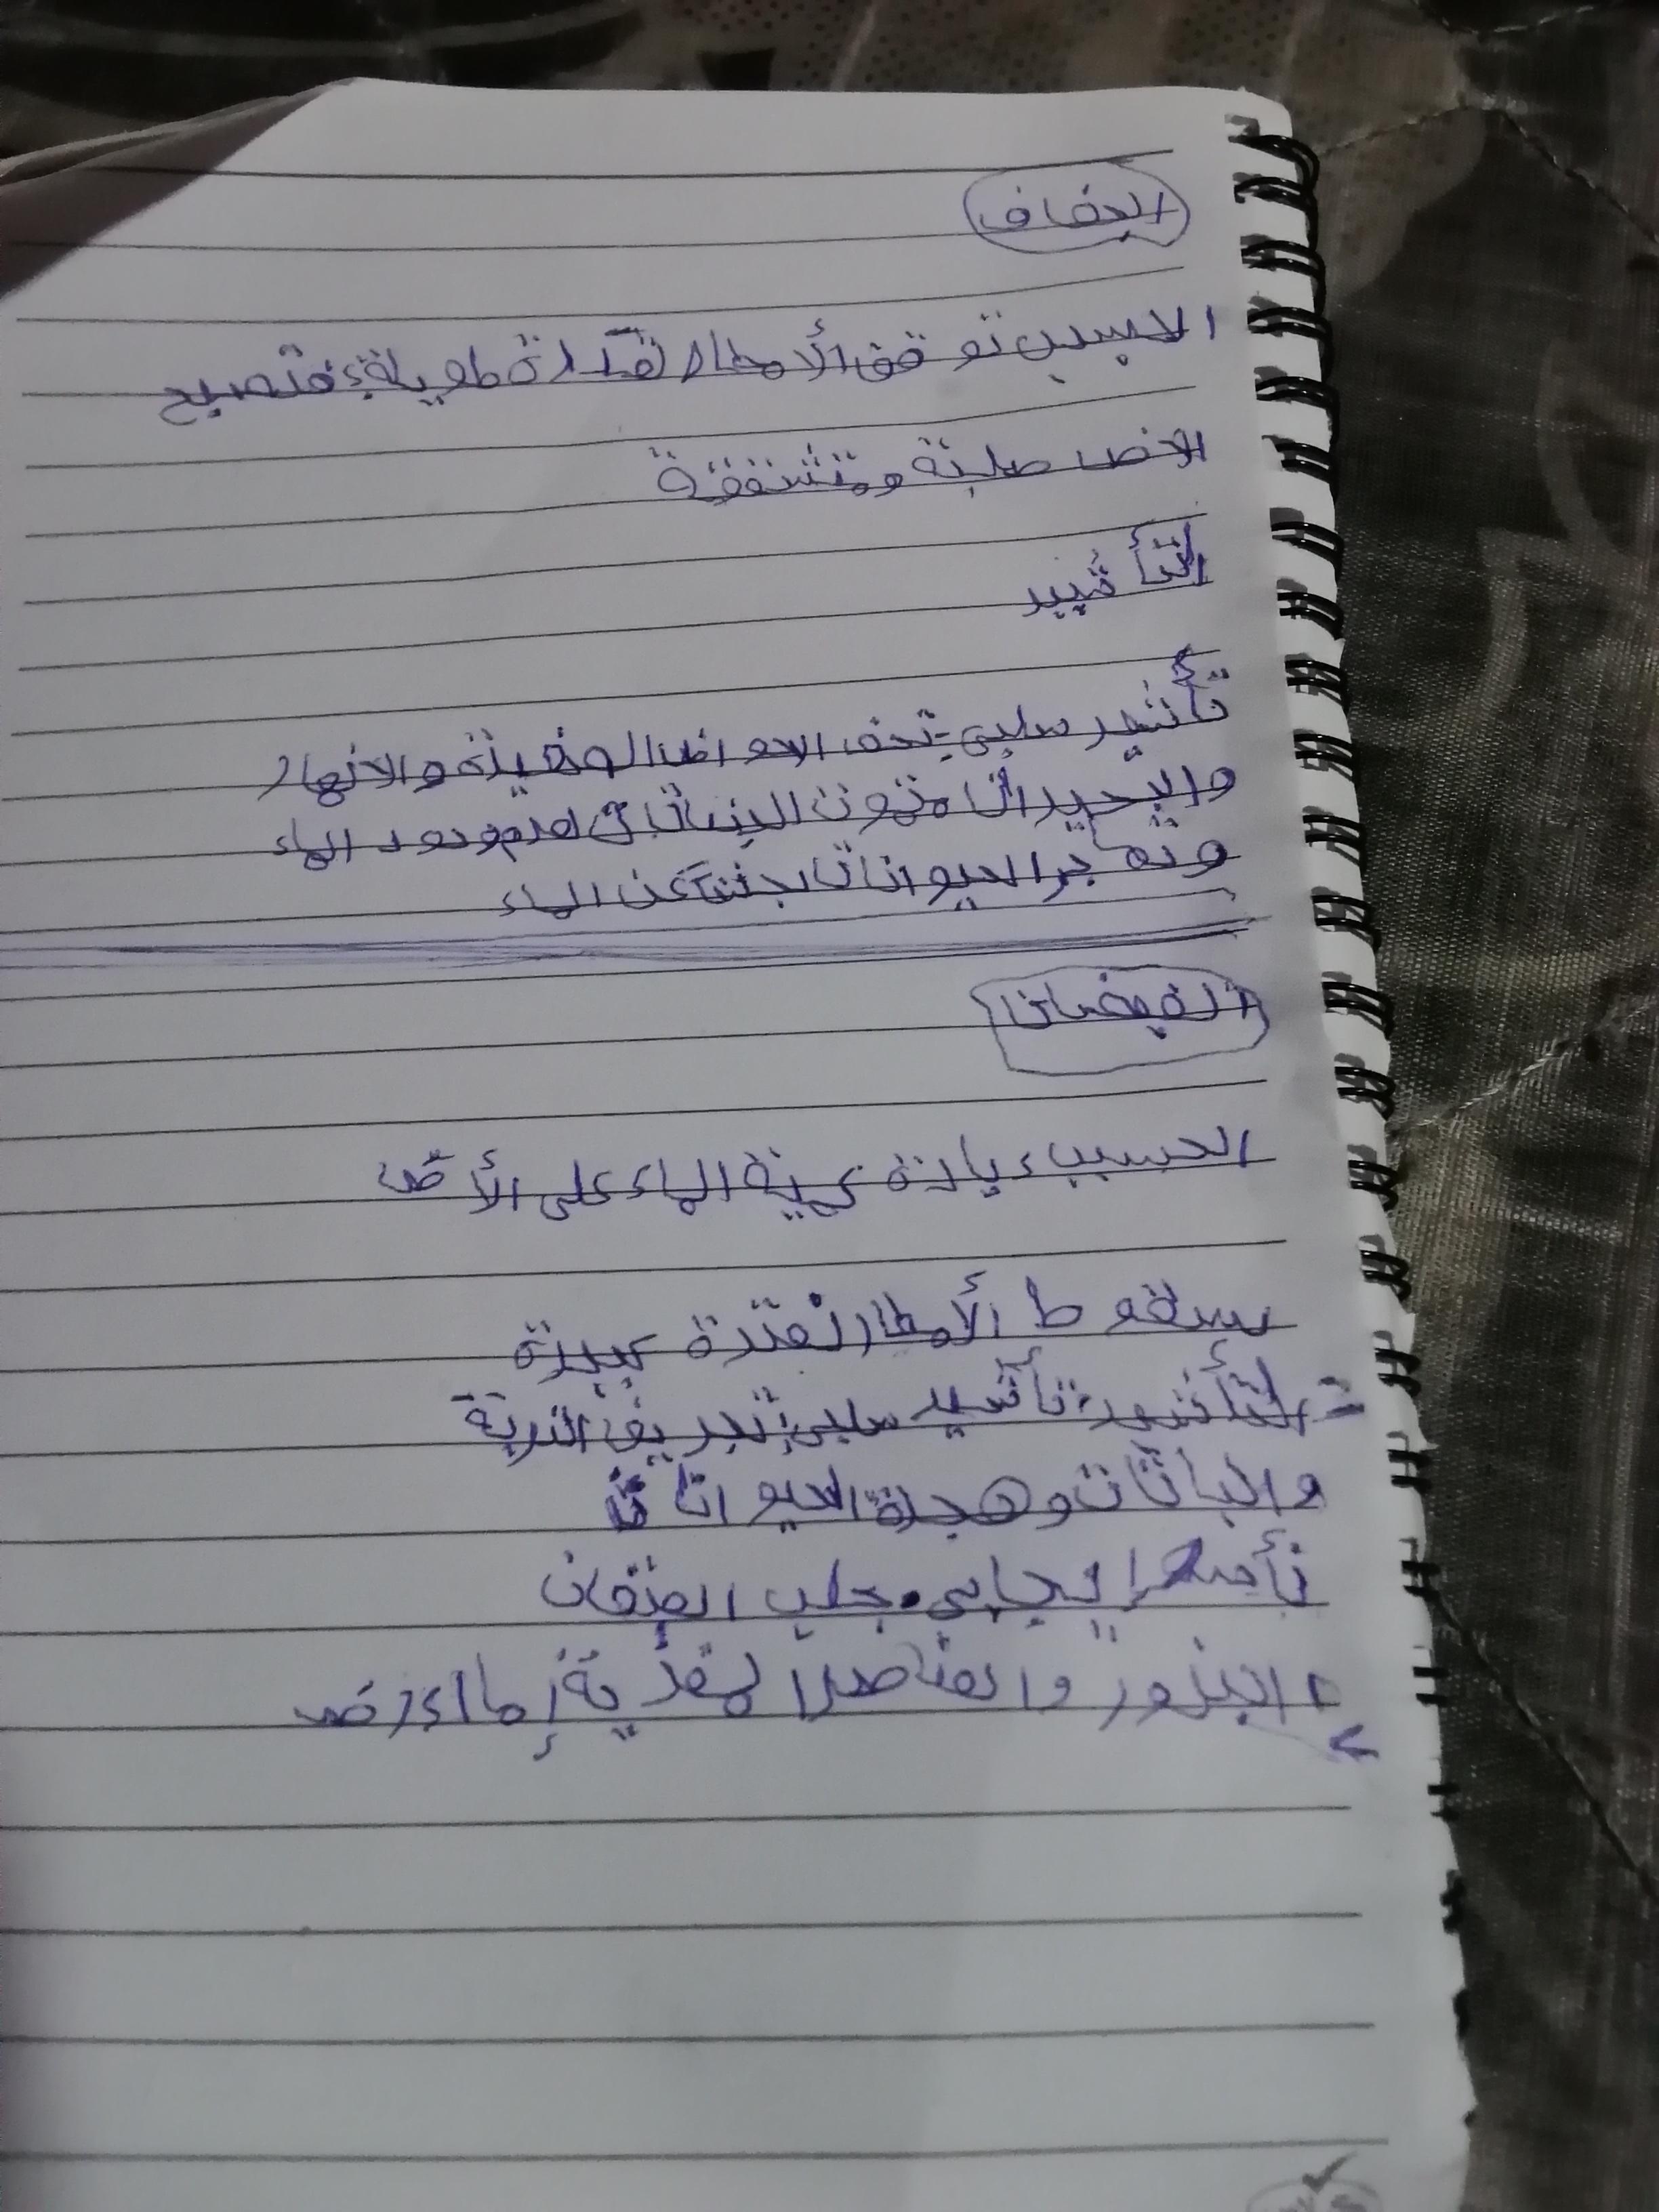 الجفاف
الاسبب توقف الأمطار لفترة طويلة فتصبح
الارض صلبة ومتشققة
التأثيير
تأثير سلبي تجف الاحواض الوضيئة والانهار
والبحيراتا متموت النباتات لعدم وجود الماء
وتهاجر الحيواناتا بحثنآ عن الماء
الفيضانا
الحسبب زيادة كمية الماء على الأرض
بسقوط الأمطار لفترة كبيرة
= التأثير: تأثيير سلبي: تجريف التربة
والباتات وهجرة الحيواناتا
تأصير إيجابي. جلب الضفان
البذور والعناصرا لمغذية إما الارض